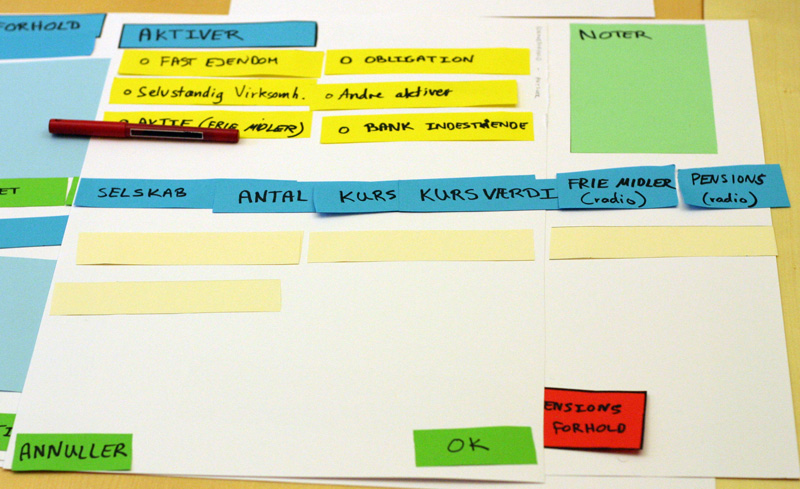 FORHOLD
AKTIVER
NOTER
o FAST EJENDOM
o OBLIGATION
o Selvstandig Virksomh.
o Andre aktiver
o AKTIE (FRIE MIDLER)
o BANK INDESTÅENDE
ET
SELSKAB
ANTAL
KURS
KURSVÆRDI
FRIE MIDLER
(radio)
PENSIONS
(radio)
ENSIONS
FORHOLD
ANNULLER
OK